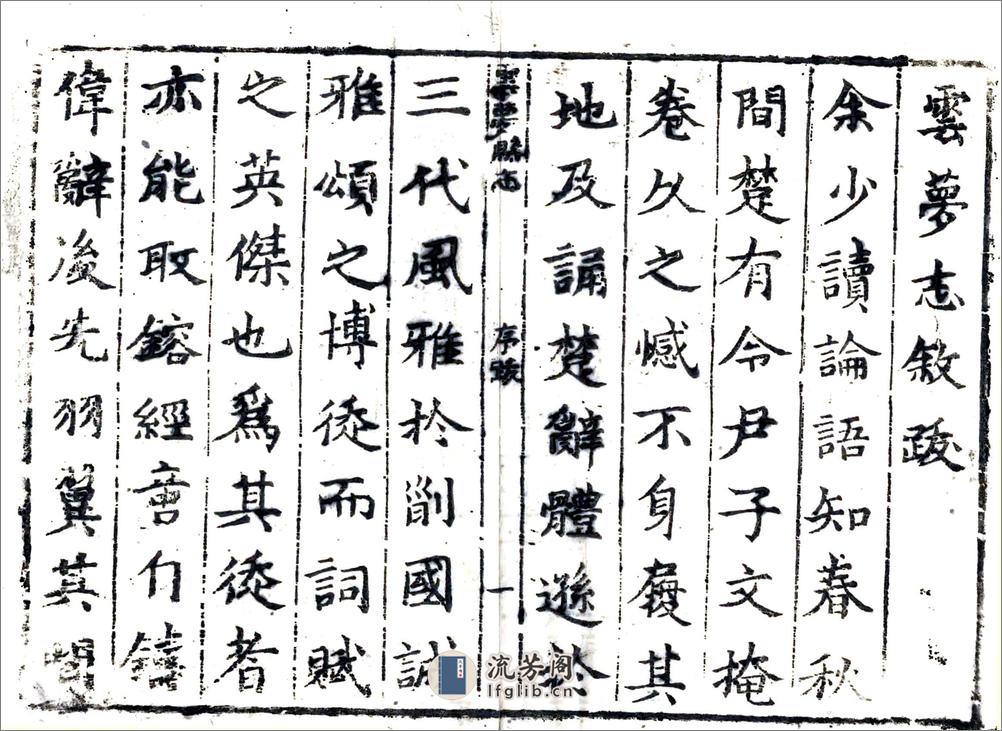 雲夢志敘跋
余少讀論語知春秋
間楚有令尹子文掩
卷久之憾不身履其
地及誦楚辭體遜於
雲夢縣志
序跋
一
三代風雅於國誠
雅頌之博徒而詞賦
之英傑也爲其徒者
亦能取鎔經意自鑄
偉辭後先羽翼其間
流芳阁
lfglib.cn